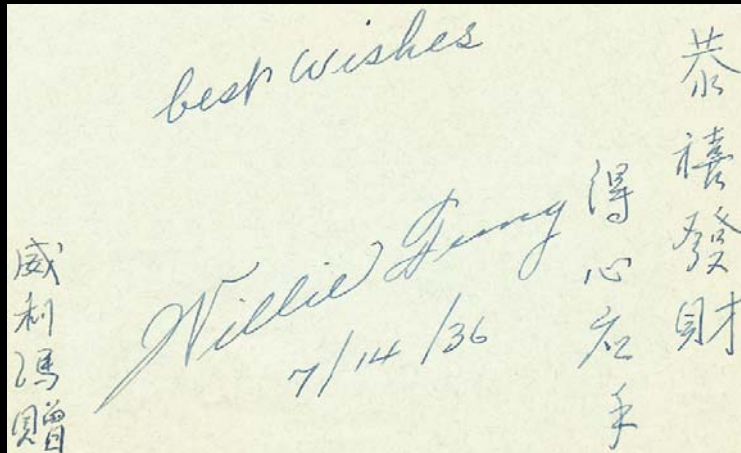 best wishes
Willie Fung
7/14/36
恭禧發財
得心应手
威利馮贈